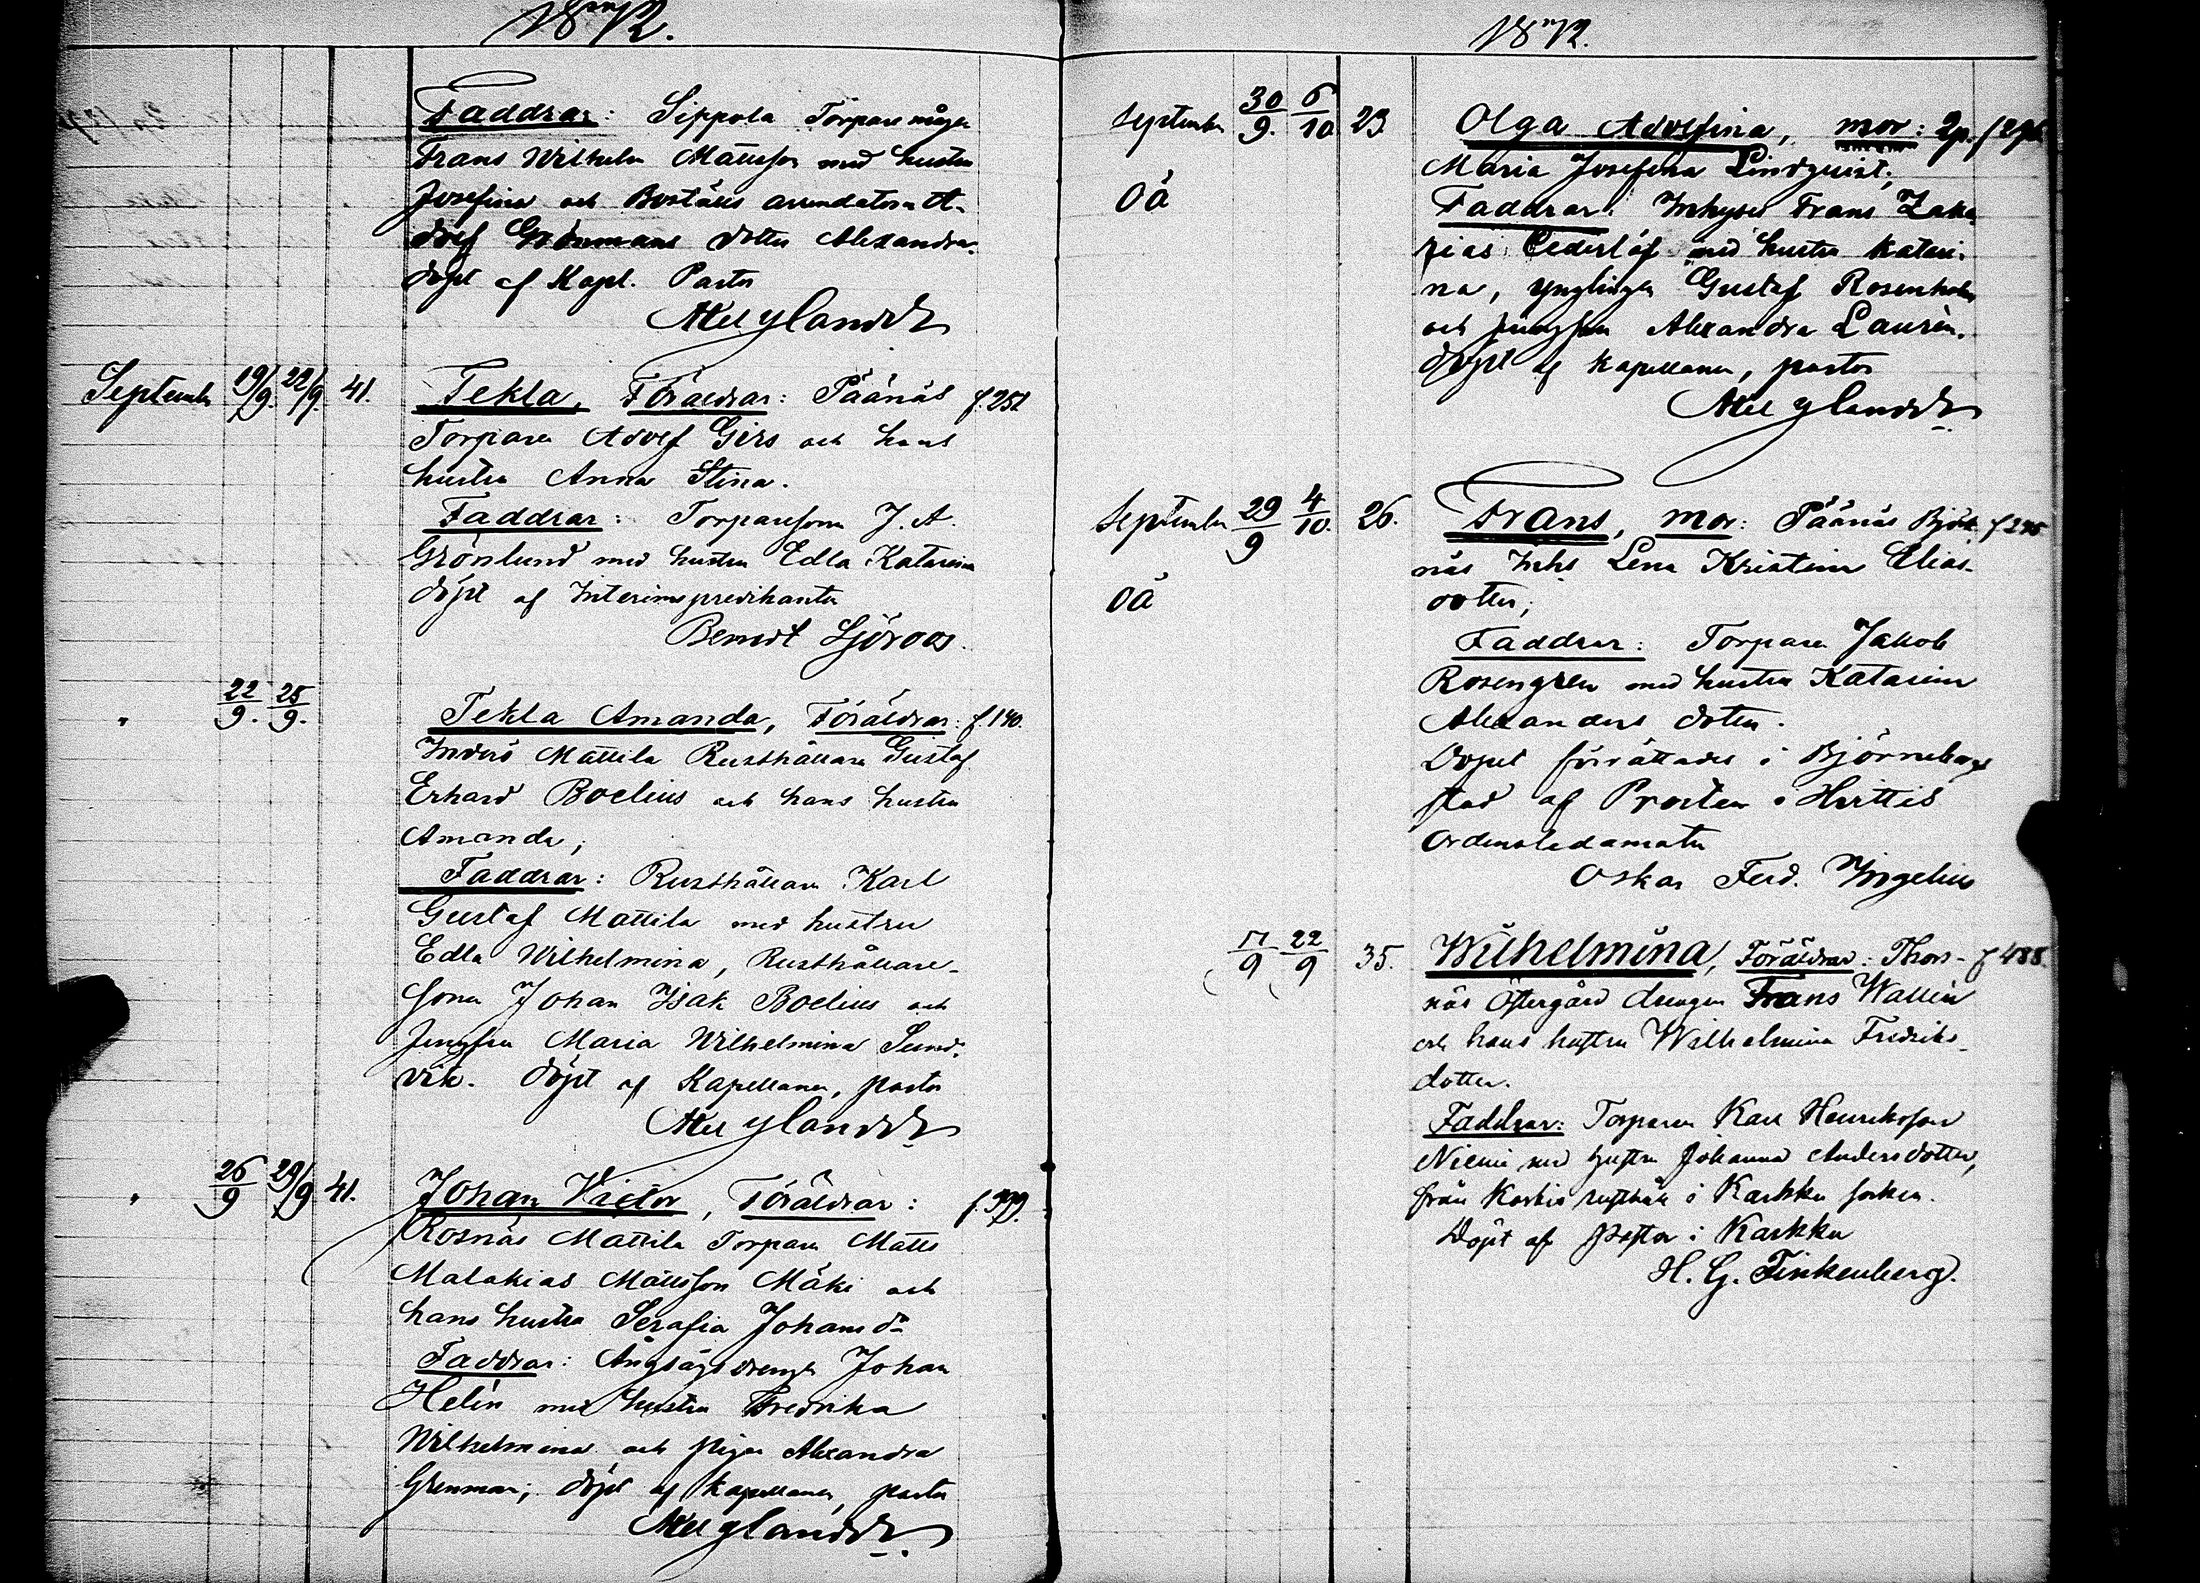 1872.
Faddrar: Sippola Torpare mågen
Frans Wilhelm Mattsson med hustru
Josefina och Boställs arrendatorn A-
dolf Grönmans dotter Alexandra.
döpt af Kapl. Pastor
Nylander
September 19/9. 22/9. 41. Tekla, Föräldrar: Päänäs f. 251
Torparen Adolf Girs och hans
hustru Anna Stina.
Faddrar: Torparesonen J. A.
Grönlund med hustru Edla Katarina
döpt af Interimspredikanten
Berndt Sjöroos.
" 22/9. 25/9. Tekla Amanda, Föräldrar: f. 140.
Inderö Mattila Rusthållare Gustaf
Erhard Boelius och hans hustru
Amanda;
Faddrar: Rusthållaren Karl
Gustaf Mattila med hustru
Edla Wilhelmina, Rusthållare-
sonen Johan Isak Boelius och
Jungfru Maria Wilhelmina Sund-
vik. döpt af Kapellanen, pastor
Nylander
" 26/9 29/9 41. Johan Victor, Föräldrar: f. 399.
Rosnäs Mattila Torpare Matts
Malakias Mattsson Mäki och
hans hustru Serafia Johansdr
Faddrar: Ångsågsdrengen Johan
Helén med hustru Fredrika
Wilhelmina och pigan Alexandra
Grenman; döpt af Kapellanen, pastor
Nylander
1872.
September 30/9. 6/10 23. Olga Adolfina, mor:
Maria Josefina Lindquist;
oä
Faddrar: Inhyses Frans Zaka-
rias Cederlöf med hustru Katari-
na, ynglingen Gustaf Rosenholm
och jungfrun Alexandra Laurén.
döpt af Kapellanen, pastor
Nylander
September 29/9 4/10. 26. Frans, mor: Päänäs Björk-
näs Inhs Lena Kristina Elias-
oä dotter;
Faddrar: Torparen Jakob
Rosengren med hustru Katarina
Alexanders dotter.
Dopet förrättades i Björneborgs
stad af Prosten i Hvittis
Ordensledamoten
Oskar Ferd. Ingelius
17/9 22/9 35. Wilhelmina, Föräldrar: Thors- f 488.
näs Östergård drengen Frans Wallén
och hans hustru Wilhelmina Fredriks-
dotter.
Faddrar: Torparen Karl Henriksson
Niemi med hustru Johanna Andersdotter,
från Koskis rusthåll i Karkku socken.
Döpt af Pastor i Karkku
H. G. Finkenberg.